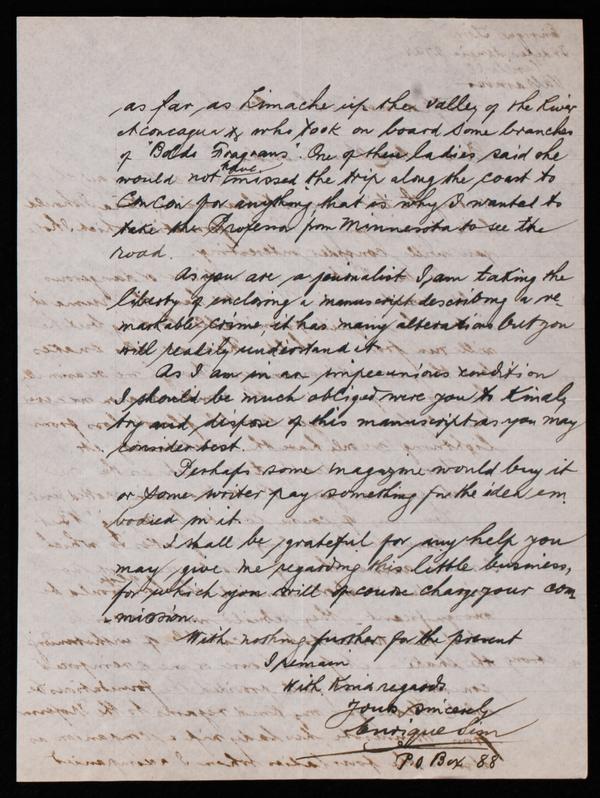 as far as Limache up the valley of the River
Aconcagua & who took on board some branches
of "Boldo Fragrans". One of these ladies said she
would not have missed the trip along the coast to
Concon for anything that is why I wanted to
take the Professor from Minnesota to see the
road.
As you are a journalist I am taking the
liberty of enclosing a manuscript describing a re-
markable crime, it has many alterations but you
will readily understand it
As I am in an impecunious condition
I should be much obliged were you to kindly
try and dispose of this manuscript as you may
consider best.
Perhaps some magazine would buy it
or some writer pay something for the idea em-
bodied in it.
I shall be grateful for any help you
may give me regarding this little business,
for which you will of course charge your com-
mission.
With nothing further for the present
I remain
With Kind regards
Yours sincerely
Enrique Sim
P.O. Box 88